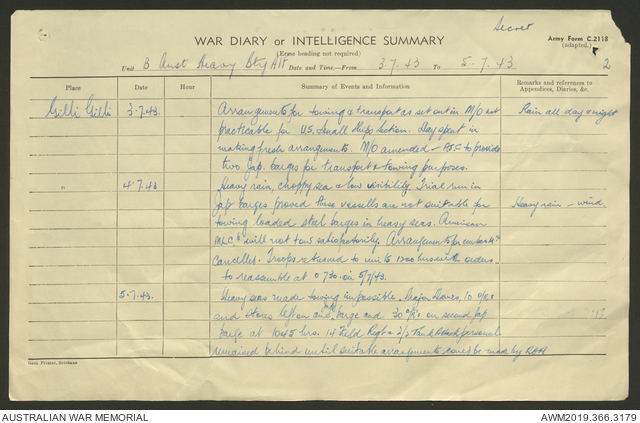 Secret
WAR DIARY or INTELLIGENCE SUMMARY
Army Form C.2118
(adapted.)
(Erase heading not required)
Unit B Aust Heavy Bty Date and Time—From 3.7.43 To 5.7.43
2
Place Date Hour Summary of Events and Information Remarks and references to
Appendices, Diaries, &c.
Gilli Gilli 3.7.43. Arrangements for towing & transport as set out in M/O not Rain all day & night
practicable for U.S. Small Ships Section. Day spent in
making fresh arrangements. M/O amended - to provide
two Jap. barges for transport & towing purposes.
" 4.7.43. Heavy rain, choppy sea & low visibility. Trial run in
Jap barges proved these vessells are not suitable for Heavy rain - wind.
towing loaded steel barges in heavy seas. American
will not tow satisfactorily. Arrangements for
cancelled. Troops returned to units 1200 hrs with orders
to reassemble at 0730 on 5/7/43.
5.7.43. Heavy seas made towing impossible. Major 10
and stores left on barge and 30 on second Jap
barge at 1045 hrs. 14 Field Regt & 2/2 Tank personnel
remained behind until suitable arrangements could be made by
Govt. Printer, Brisbane
AUSTRALIAN WAR MEMORIAL AWM2019.366.3179